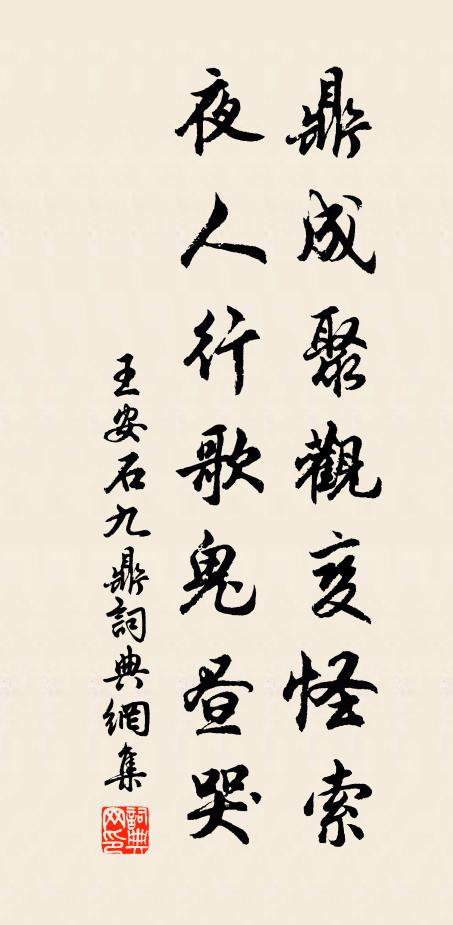 鼎成聚觀變怪索
夜人行歌鬼晝哭
王安石九鼎詞典網集
詞典網印